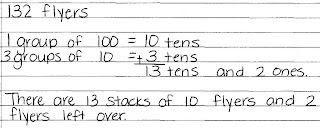 132 flyers
1 group of 100 = 10 tens
3 groups of 10 = + 3 tens
13 tens and 2 ones.
There are 13 stacks of 10 flyers and 2
flyers left over.